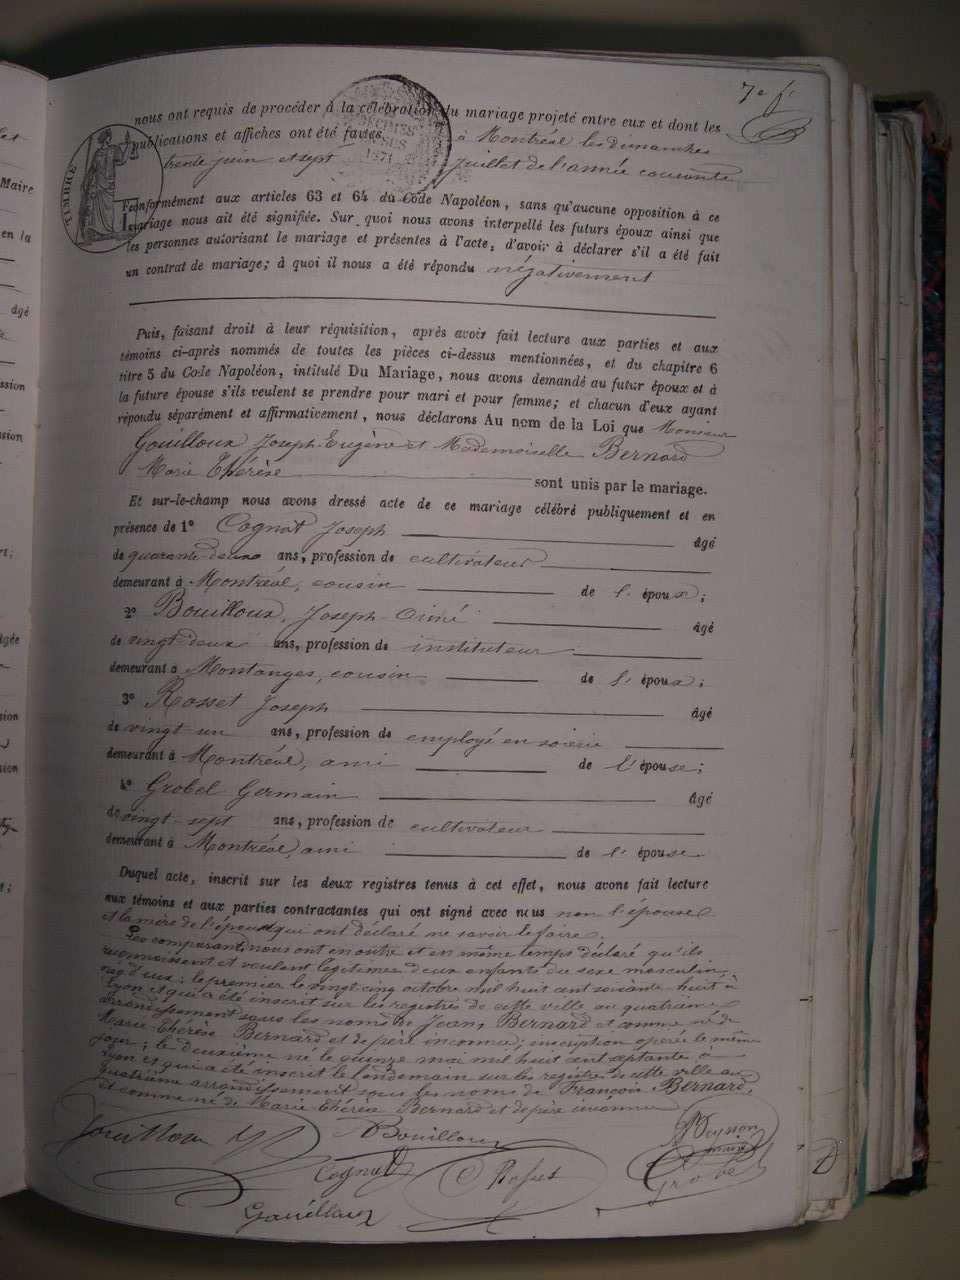 7e f.
nous ont requis de procéder à la célébration du mariage projeté entre eux et dont les
publications et affiches ont été faites à Montréal les dimanches
trente juin et sept juillet de l'année courante
TIMBRE
Conformément aux articles 63 et 64 du Code Napoléon, sans qu'aucune opposition à ce
mariage nous ait été signifiée. Sur quoi nous avons interpellé les futurs époux ainsi que
les personnes autorisant le mariage et présentes à l'acte, d'avoir à déclarer s'il a été fait
un contrat de mariage; à quoi il nous a été répondu négativement
Puis, faisant droit à leur réquisition, après avoir fait lecture aux parties et aux
témoins ci-après nommés de toutes les pièces ci-dessus mentionnées, et du chapitre 6
titre 5 du Code Napoléon, intitulé Du Mariage, nous avons demandé au futur époux et à
la future épouse s'ils veulent se prendre pour mari et pour femme; et chacun d'eux ayant
répondu séparément et affirmativement, nous déclarons Au nom de la Loi que Monsieur
Gouilloux Joseph-Eugène et Mademoiselle Bernard
Marie Thérèse sont unis par le mariage.
Et sur-le-champ nous avons dressé acte de ce mariage célébré publiquement et en
présence de 1° Cognat Joseph âgé
de quarante-deux ans, profession de cultivateur
demeurant à Montréal, cousin de l'époux;
2° Bouilloux, Joseph-Aimé âgé
de vingt-deux ans, profession de instituteur
demeurant à Montanges, cousin de l'époux;
3° Rosset Joseph âgé
de vingt-un ans, profession de employé en soierie
demeurant à Montréal, ami de l'épouse;
4° Grobel Germain âgé
de vingt-sept ans, profession de cultivateur
demeurant à Montréal, ami de l'épouse
Duquel acte, inscrit sur les deux registres tenus à cet effet, nous avons fait lecture
aux témoins et aux parties contractantes qui ont signé avec nous non l'épouse
et la mère de l'époux qui ont déclaré ne savoir le faire.
Les comparants nous ont en outre et en même temps déclaré qu'ils
reconnaissent et veulent légitimer deux enfants du sexe masculin
né d'eux: le premier le vingt cinq octobre mil huit cent soixante-huit à
Lyon et qui a été inscrit sur les registres de cette ville au quatrième
arrondissement sous les noms de Jean, Bernard et comme né de
Marie-Thérèse Bernard et de père inconnu; inscription opérée le même
jour; le deuxième né le quinze mai mil huit cent septante à
Lyon et qui a été inscrit le lendemain sur les registres de cette ville au
quatrième arrondissement sous les noms de François Bernard,
et comme né de Marie Thérèse Bernard et de père inconnu
Gouilloux
Bouilloux
maire
Cognat
Rosset
Grobel
Gouilloux